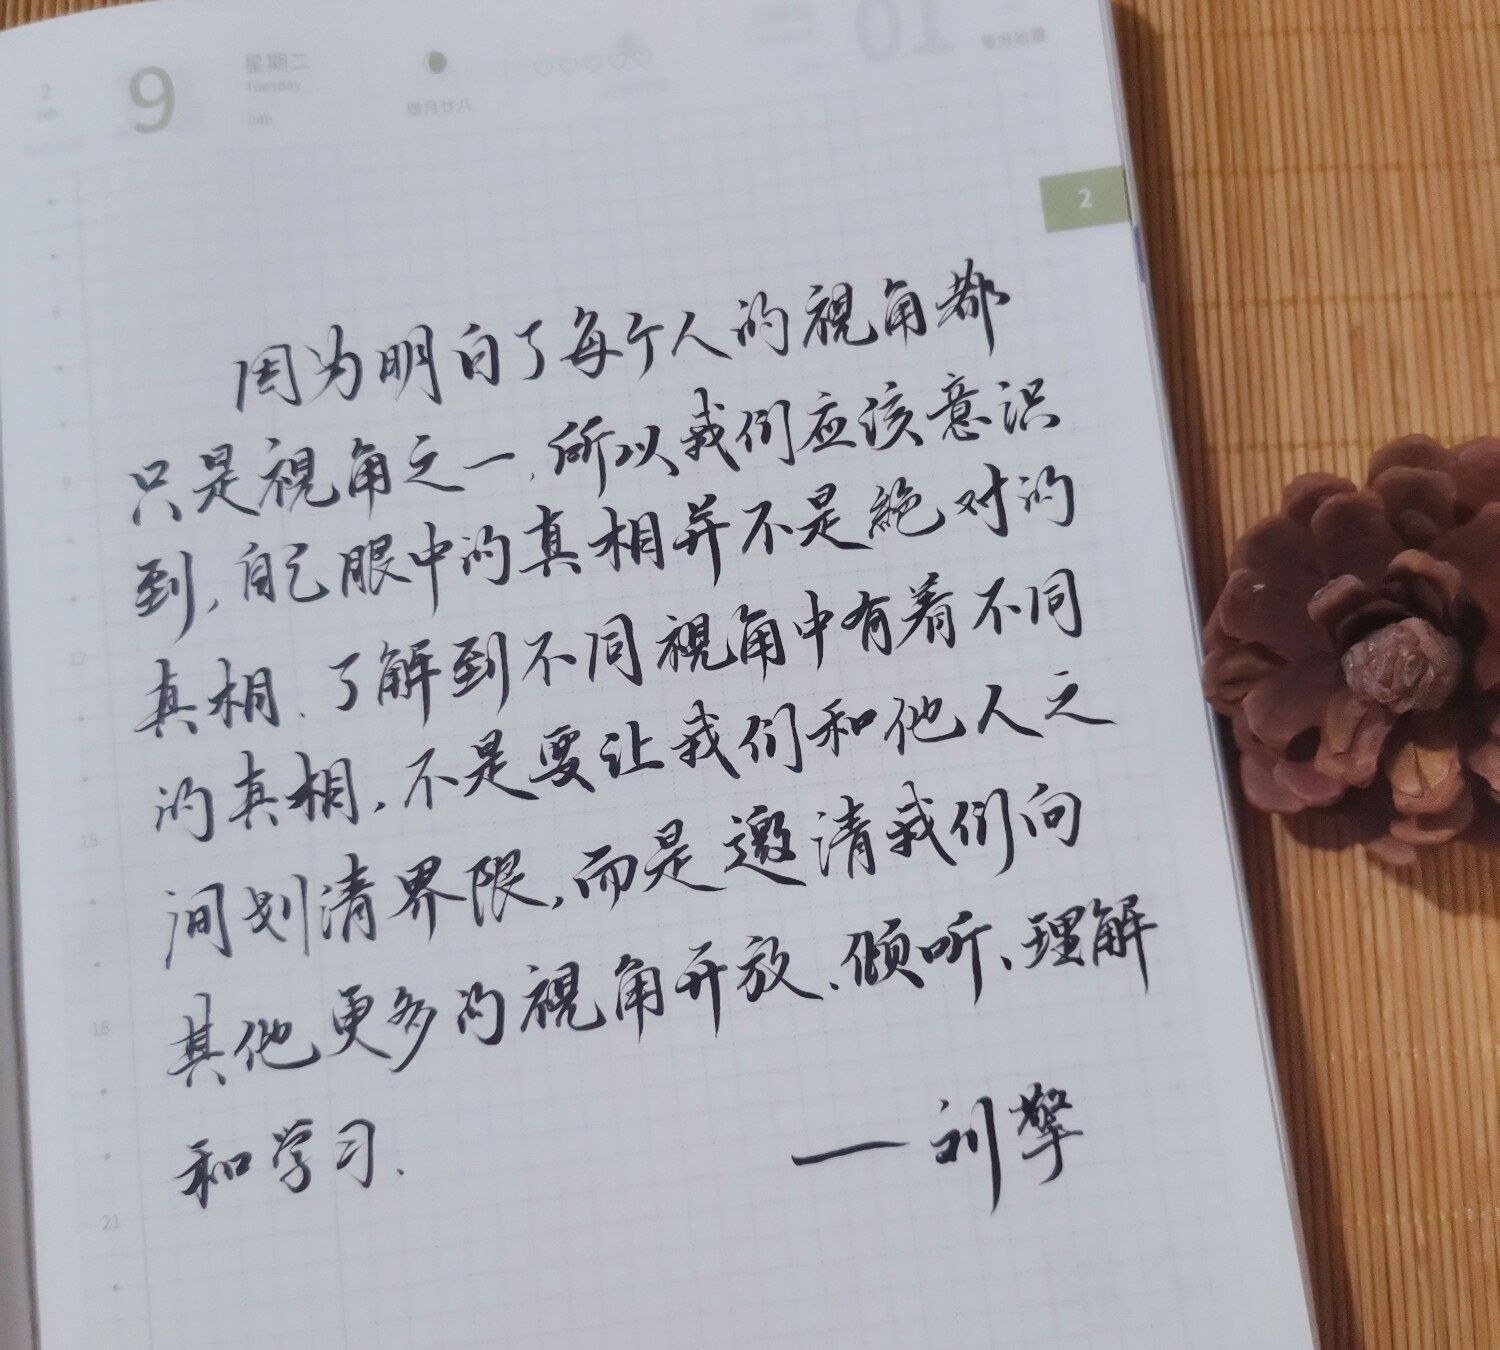 2
Feb
9
星期二
Tuesday
040
腊月廿八
10
2
因为明白了每个人的視角都
只是視角之一,所以我们应该意识
到,自己眼中的真相并不是絶对的
真相.了解到不同視角中有着不同
的真相,不是要让我们和他人之
间划清界限,而是邀请我们向
其他更多的視角开放、倾听、理解
和学习.
——刘擎
9
12
15
18
21